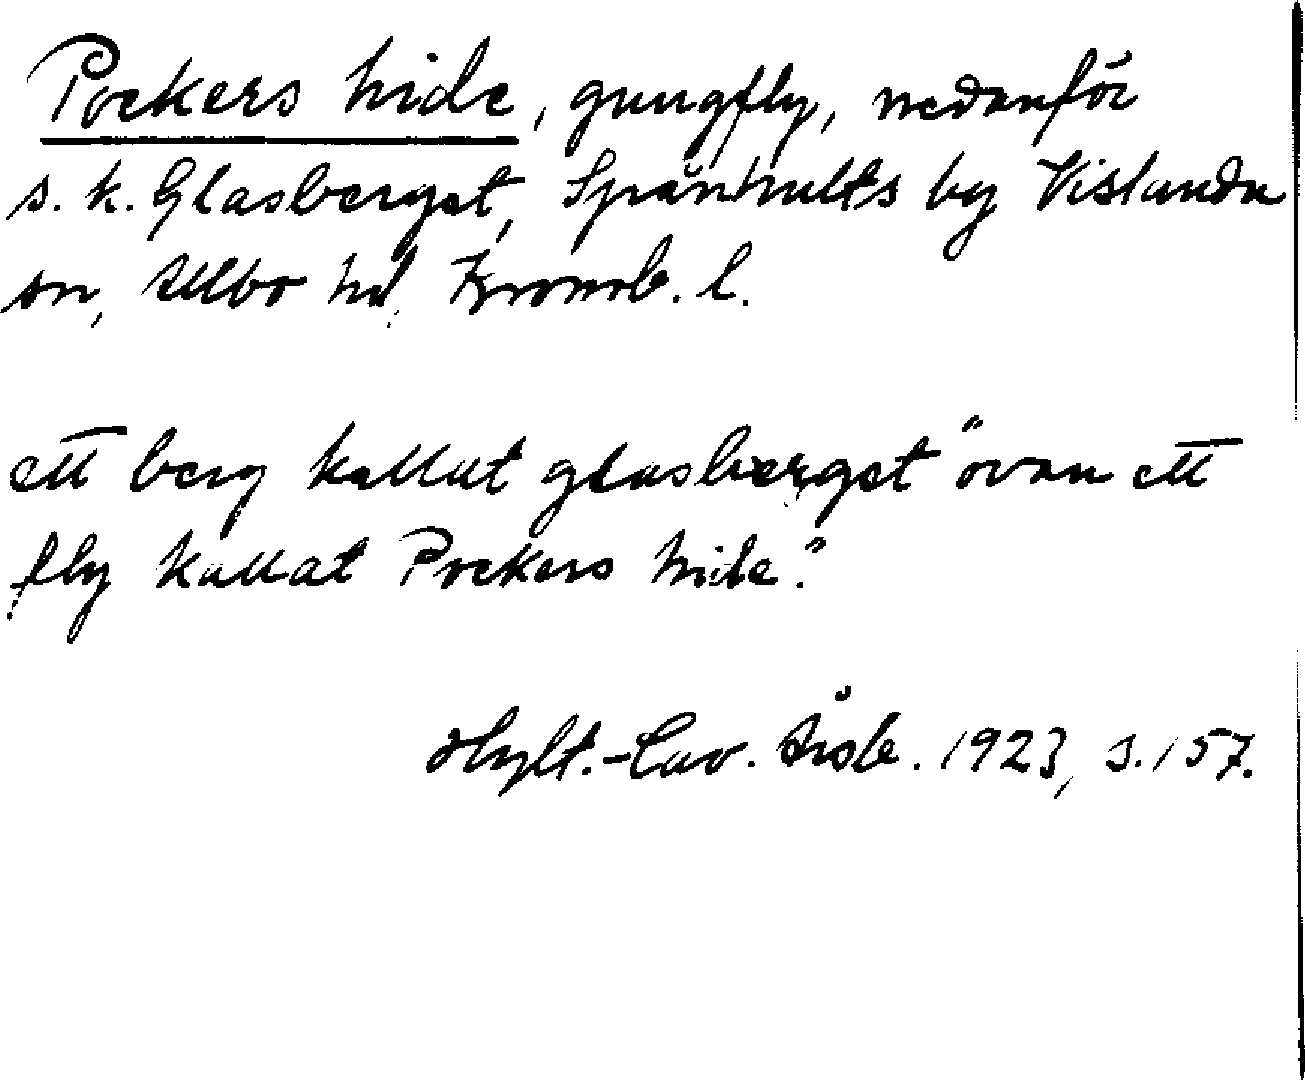 Pockers hide, gungfly, nedanför
s. k. Glasberget, Spånhults by Vislanda
sn, Allbo hd, Kronob. l.
ett berg kallat glasberget "ovan ett
fly kallat Pockers hide."
Hylt.-Cav. Årsb. 1923, s. 157.